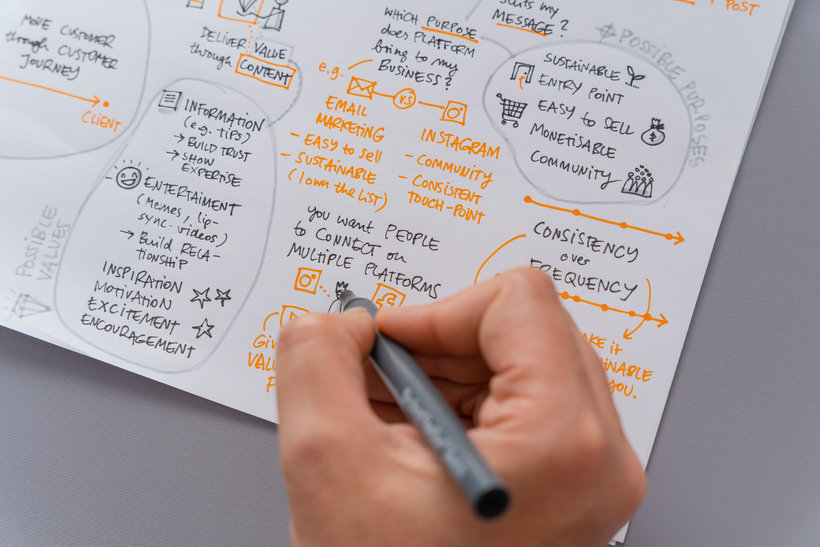 MOVE CUSTOMER
through CUSTOMER
JOURNEY
CLIENT
DELIVER VALUE
through CONTENT
INFORMATION
(e.g. tips)
→ BUILD TRUST
→ SHOW
EXPERTISE
ENTERTAIMENT
(Memes, lip-
sync-videos)
→ Build RELA-
TIONSHIP
INSPIRATION
MOTIVATION
EXCITEMENT
ENCOURAGEMENT
POSSIBLE
VALUES
WHICH PURPOSE
does PLATFORM
bring to my
BUSINESS?
e.g.
VS
EMAIL
MARKETING
- EASY to sell
- SUSTAINABLE
(I own the LIST)
INSTAGRAM
- COMMUNITY
- CONSISTENT
TOUCH-POINT
you want PEOPLE
to CONNECT on
MULTIPLE PLATFORMS
my
MESSAGE?
POST
POSSIBLE PURPOSES
SUSTAINABLE
ENTRY POINT
EASY to SELL
MONETISABLE
COMMUNITY
CONSISTENCY
over
FREQUENCY
it
YOU.